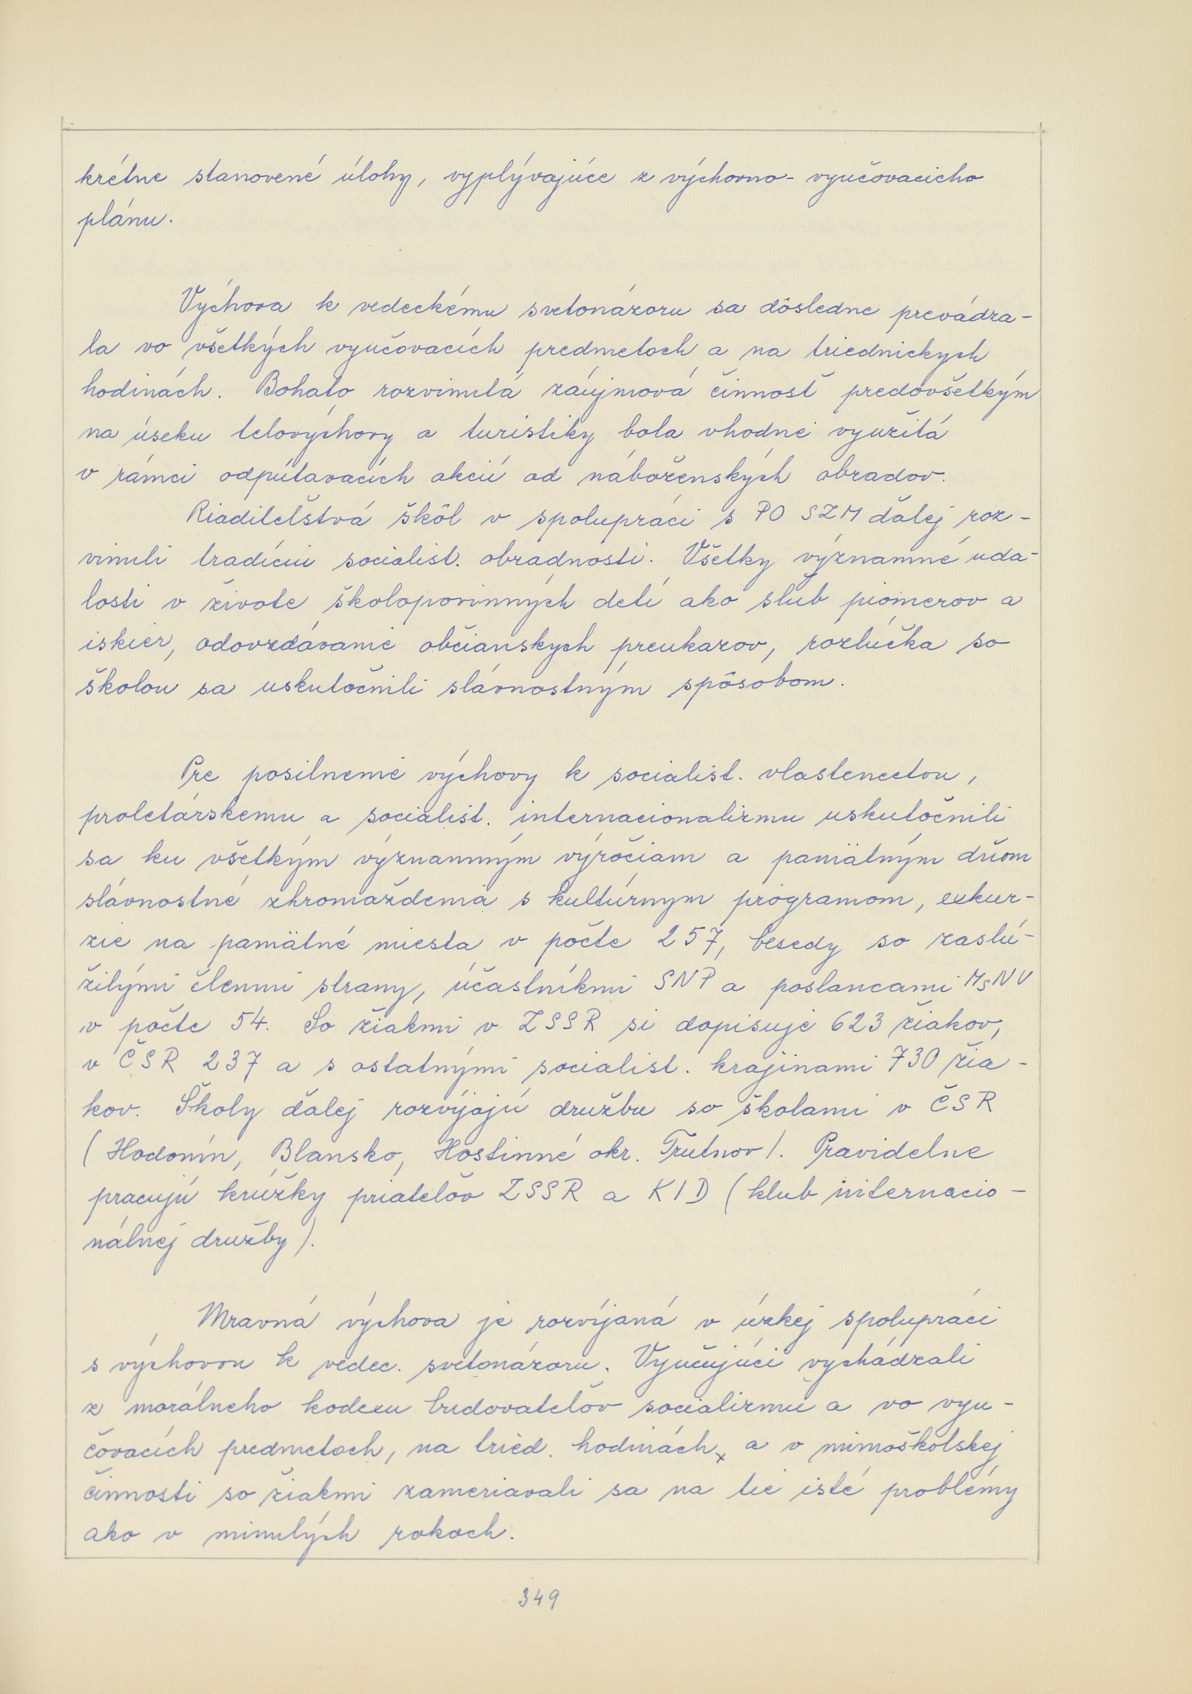 krétne stanovené úlohy, vyplývajúce z výchovno-vyučovacieho
plánu.
Výchova k vedeckému svetonázoru sa dôsledne prevádza-
la vo všetkých vyučovacích predmetoch a na triednických
hodinách. Bohato rozvinutá záujmová činnosť predovšetkým
na úseku telovýchovy a turistiky bola vhodne využitá
v rámci odpútavacích akcií od náboženských obradov.
Riaditeľstvá škôl v spolupráci s PO SZM ďalej roz-
vinuli tradíciu socialist. obradnosti. Všetky významné uda-
losti v živote školopovinných detí ako sľub pionierov a
iskier, odovzdávanie občianskych preukazov, rozlúčka so
školou sa uskutočnili slávnostným spôsobom.
Pre posilnenie výchovy k socialist. vlastenectvu,
proletárskemu a socialist. internacionalizmu uskutočnili
sa ku všetkým významným výročiam a pamätným dňom
slávnostné zhromaždenia s kultúrnym programom, exkur-
zie na pamätné miesta v počte 257, besedy so zaslú-
žilými členmi strany, účastníkmi SNP a poslancami MsNV
v počte 54. So žiakmi v ZSSR si dopisuje 623 žiakov,
v ČSR 237 a s ostatnými socialist. krajinami 730 žia-
kov. Školy ďalej rozvíjajú družbu so školami v ČSR
(Hodonín, Blansko, Hostinné okr. Trutnov). Pravidelne
pracujú krúžky priateľov ZSSR a KID (klub internacio-
nálnej družby).
Mravná výchova je rozvíjaná v úzkej spolupráci
s výchovou k vedec. svetonázoru. Vyučujúci vychádzali
z morálneho kodexu budovateľov socializmu a vo vyu-
čovacích predmetoch, na tried. hodinách, a v mimoškolskej
činnosti so žiakmi zameriavali sa na tie isté problémy
ako v minulých rokoch.
349